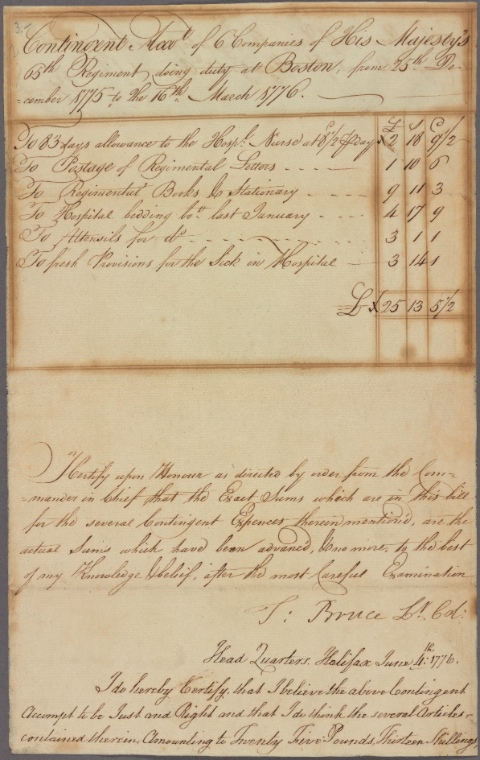 35
Contingent Accot. of 6 Companies of His Majesty's
65th Regiment doing duty at Boston, from 25th De-
-cember 1775 to the 16th. March 1776.
£ S D
To 83 days allowance to the Hospl. Nurse at 8 1/2 ⅌ Day 2 18 9 1/2
To Postage of Regimental Letters 1 10 6
To Regimental Books & Stationary 9 11 3
To Hospital bedding bot. last January 4 17 9
To Uttensils for do. 3 1 1
To fresh Provisions for the Sick in Hospital 3 14 1
£ 25 13 5 1/2
I Certify upon Honour as directed by order from the Com-
-mander in Chief that the Exact Sums which are in this bill
for the several Contingent Expences therein mentioned, are the
actual Sums which have been advanced, & no more, to the best
of my Knowledge & belief, after the most Careful Examination
T: Bruce Lt. Col:
Head Quarters, Halifax June 4th: 1776.
I do hereby Certify, that I believe the above Contingent
Accompt to be Just and Right and that I do think the several Articles
contained therein, Amounting to Twenty Five Pounds, Thirteen Shillings